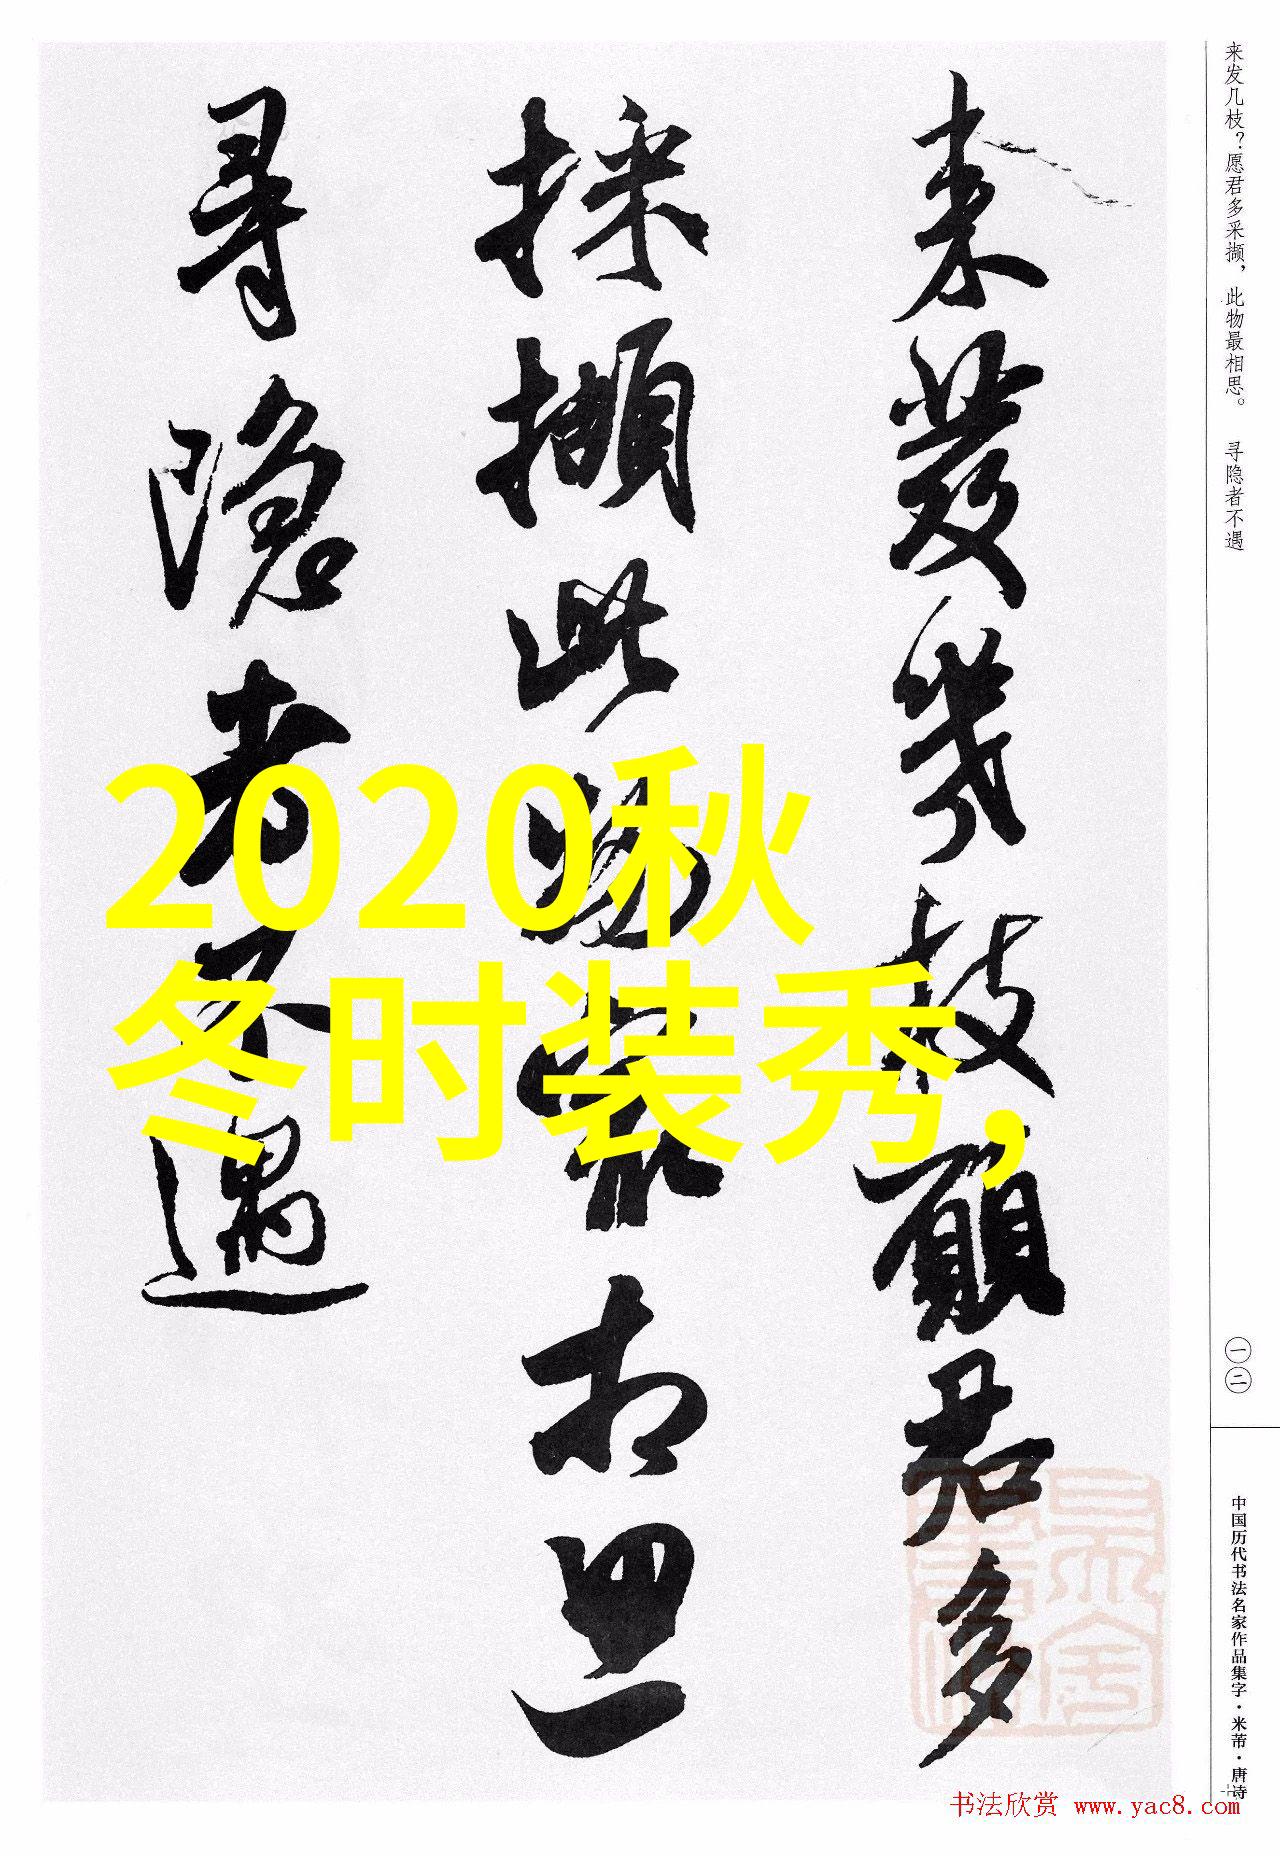 来发几枝？愿君多采撷，此物最相思。 寻隐者不遇
来發幾枝願君多
採擷此物最相思
尋隱者不遇
2020秋
冬时装秀，
一二
中国历代书法名家作品集字·米芾·唐诗
书法欣赏 www.yac8.com